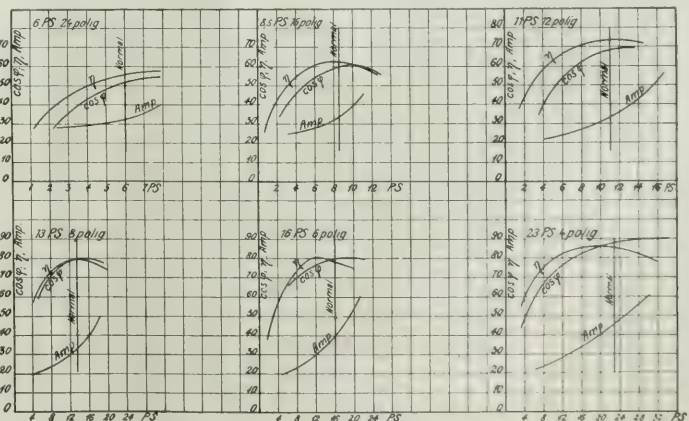 6 PS 24 polig
cos φ, η, Amp
70
60
50
40
30
20
10
0
η
cos φ
Amp
Normal
1 2 3 4 5 6 7 PS
8,5 PS 16 polig
cos φ, η, Amp
70
60
50
40
30
20
10
0
η
cos φ
Amp
Normal
2 4 6 8 10 12 PS
11 PS 12 polig
cos φ, η, Amp
80
70
60
50
40
30
20
10
0
η
cos φ
Amp
Normal
2 4 6 8 10 12 14 16 PS
13 PS 8 polig
cos φ, η, Amp
90
80
70
60
50
40
30
20
10
0
η
cos φ
Amp
Normal
4 8 12 16 20 24 PS
16 PS 6 polig
cos φ, η, Amp
90
80
70
60
50
40
30
20
10
0
η
cos φ
Amp
Normal
4 8 12 16 20 24 PS
23 PS 4 polig
cos φ, η Amp
90
80
70
60
50
40
30
20
10
0
η
cos φ
Amp
Normal
4 8 12 16 20 24 28 32 PS